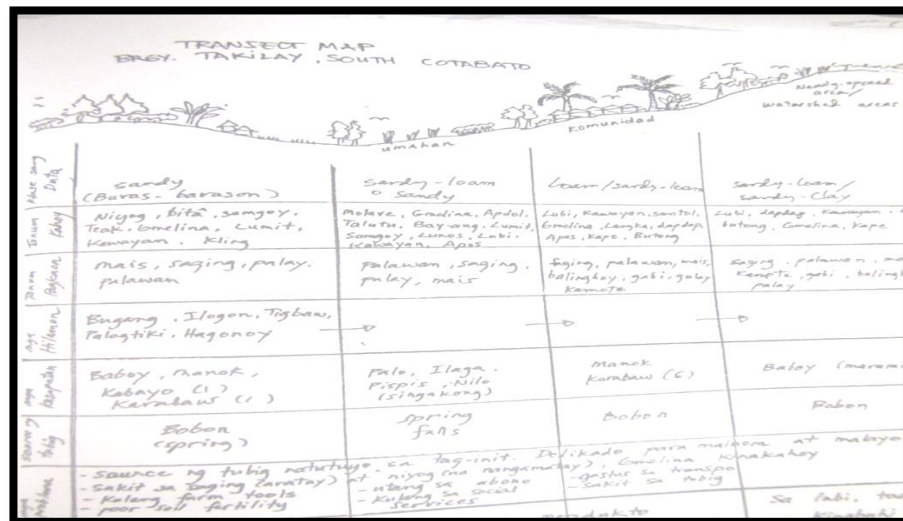 TRANSECT MAP
BRGY. TAKILAY, SOUTH COTABATO
Newly-opened
area/
watershed areas
Komunidad
umahan
Klase sang
Duta
sandy
(Baras-barason)
sandy-loam
sandy
Loam/sandy-loam
sandy-loam/
sandy-clay
Tanum
Kahoy
Niyog, bita, samgoy,
Teak, Gmelina, Lumit,
Kawayan, Kling
Molave, Gmelina, Apdol,
Talutu, Bayong, Lumit,
Samgoy, Lunos, Lubi,
Kawayan, Apas
Lubi, Kawayan, santol,
Gmelina, Langka, dapdap,
Apas, Kape, Butong
Lubi, dapdap, Kawayan,
butong, Gmelina, Kape
Tanom
Pagkaon
mais, saging, palay,
palawan
Palawan, saging,
palay, mais
Saging, palawan, mais,
balinghoy, gabi, gulay
kamote
Saging, palawan,
Kamote, gabi,
palay
mga
Hilamon
Bugang, Ilogon, Tigbaw,
Palagtiki, Hagonoy
mga
Kasapatan
Baboy, manok,
Kabayo (1)
Karabaw (1)
Palo, Ilaga,
Pispis, Nilo
(singakong)
Manok
Karabaw (6)
Baboy
source ng
tubig
Bobon
(spring)
spring
Bobon
Bobon
- Source ng tubig natutuyo sa tag-init. Delikado para mainom at malayo
- Sakit sa saging (aratay) at niyog (na nangamatay), Gmelina kinakahoy
- Kulang farm tools
- utang sa abono
- gastos sa transpo
- poor soil fertility
- Kulang sa social
services
- sakit sa tubig
produkto